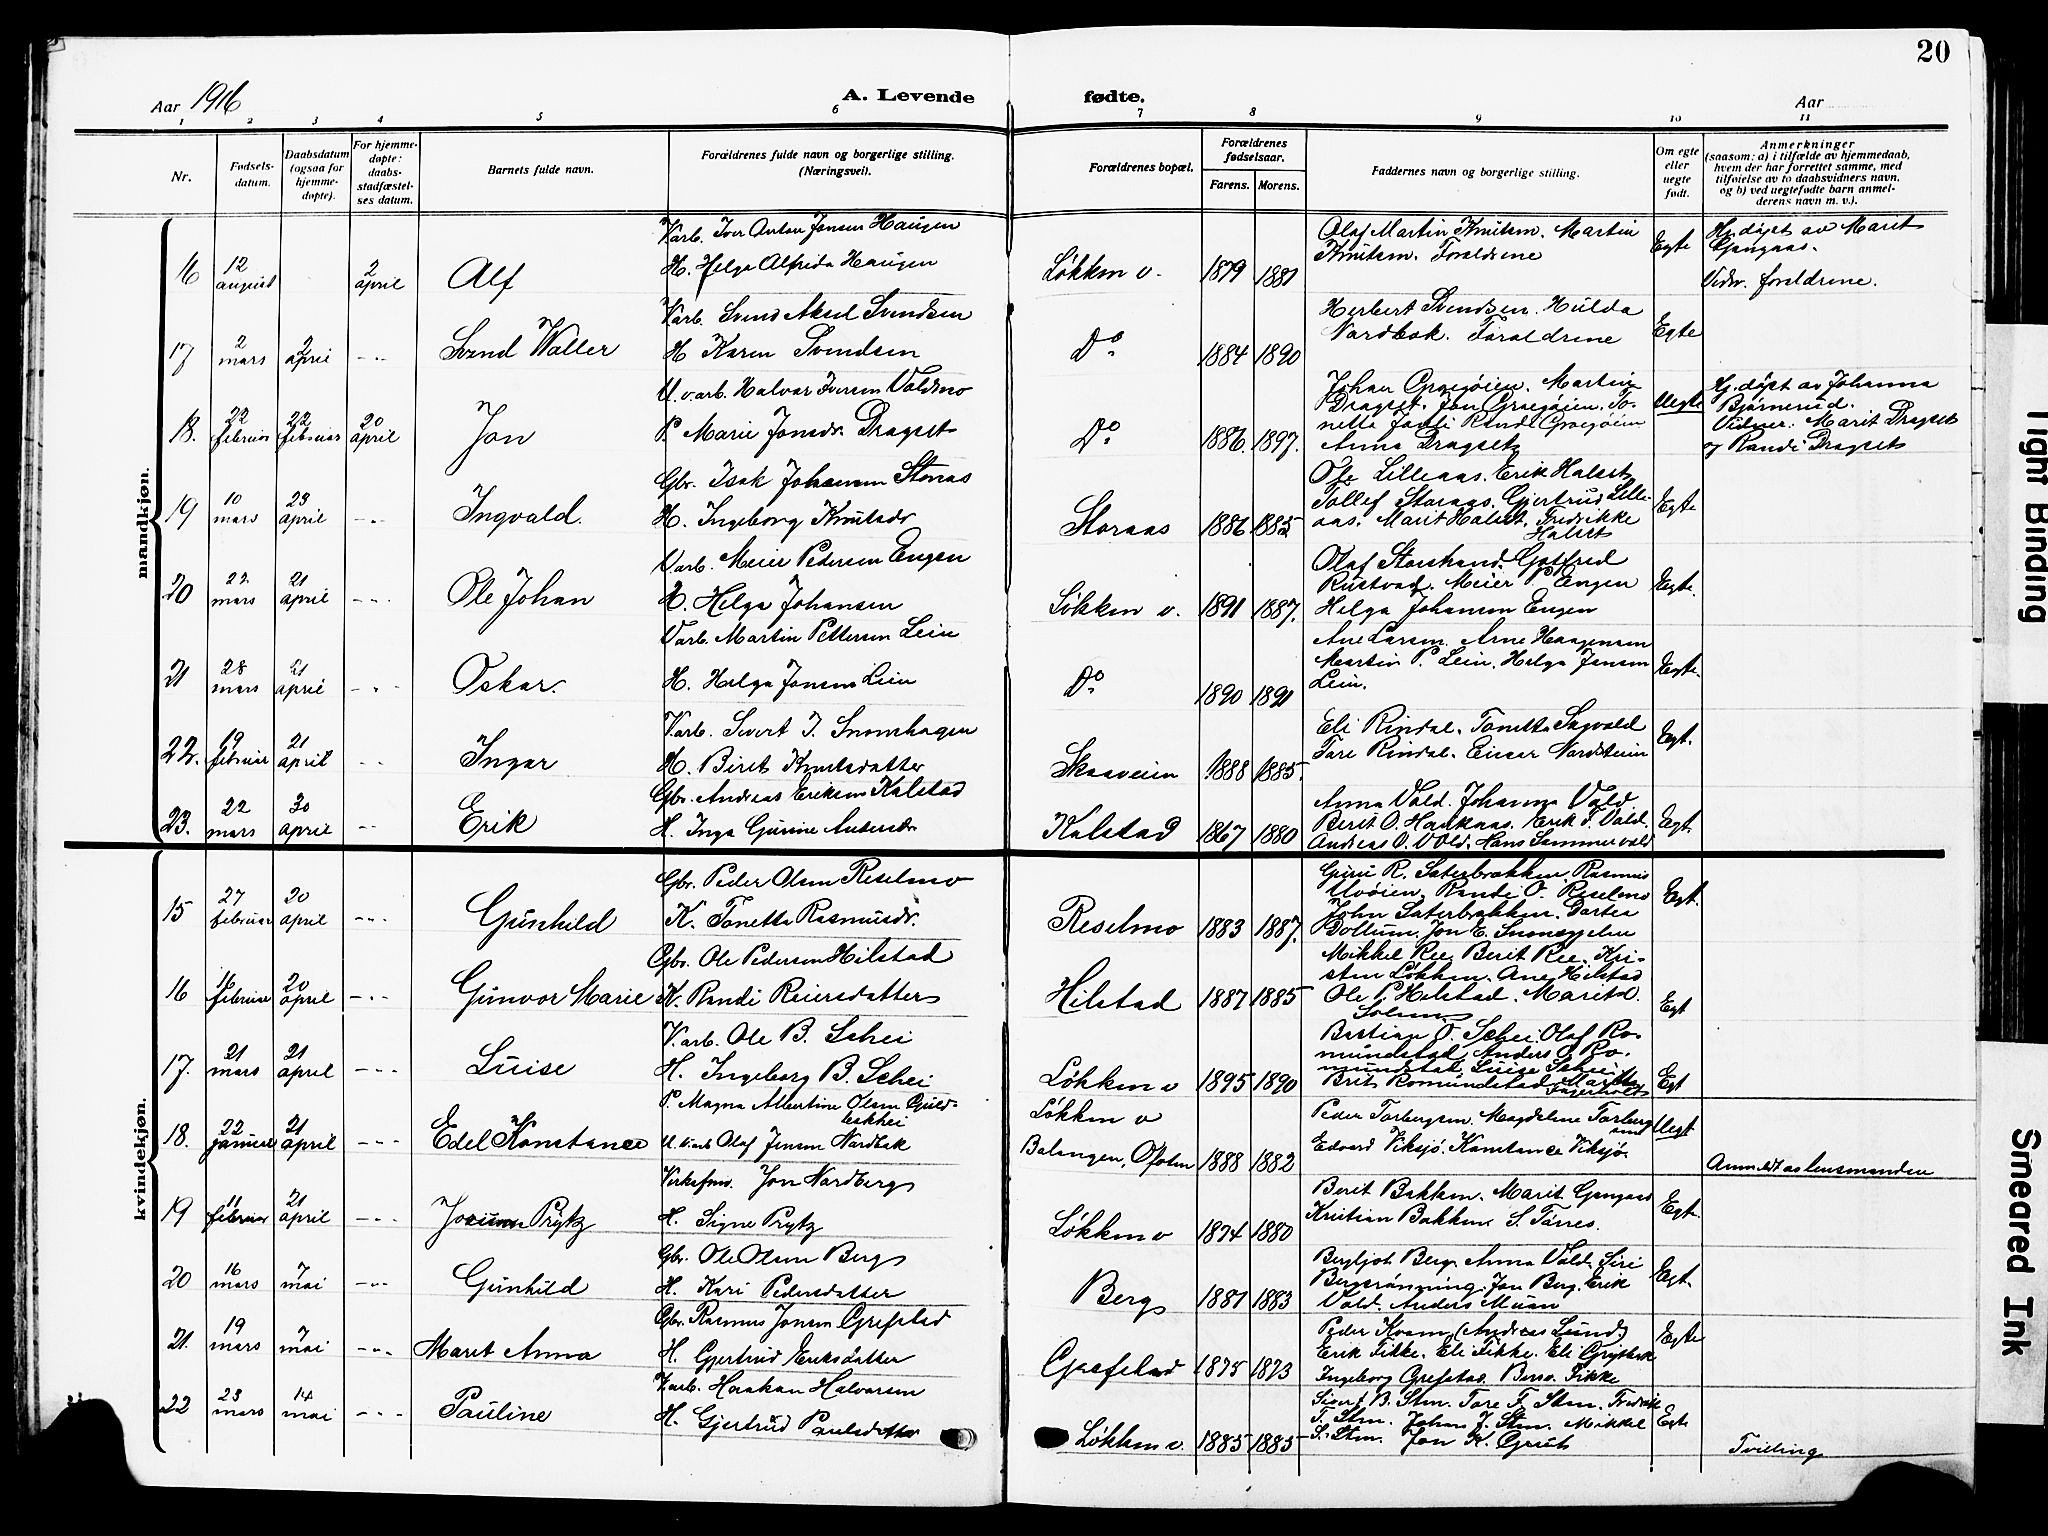 20
Aar 1916
A. Levende
fødte.
Aar
1 2 3 4 5 6 7 8 9 10 11
Nr.
Fødsels-
datum.
Daabsdatum
(ogsaa for
hjemme-
døpte).
For hjemme-
døpte:
daabs-
stadfæstel-
ses datum.
Barnets fulde navn.
Forældrenes fulde navn og borgerlige stilling.
(Næringsvei).
Forældrenes bopæl.
Forældrenes
fødselsaar.
Farens. Morens.
Faddernes navn og borgerlige stilling.
Om egte
eller
uegte
født.
Anmerkninger
(saasom: a) i tilfælde av hjemmedaab,
hvem der har forrettet samme, med
tilføielse av to daabsvidners navn,
og b) ved uegtefødte barn anmel-
derens navn m. v.).
mandkjøn.
16 12 august 2 april Alf
Varb. Iver Anton Jonsen Haugen
H. Helga Alfrida Haugen
Løkken v. 1879 1881
Olaf Martin Knutsen. Martin
Knutsen. Foraldrene
Egte
Hj. døpt av Marit
Gangaas.
Vidn. foreldrene.
17 2 mars 2 april - - - Svend Waller
Varb. Svend Aksel Svendsen
H Karen Svendsen
Do 1884 1890
Herbert Svendsen. Hulda
Nordbak. Foraldrene
Egte
18. 22 februar 22 februar 20 april Jon
U.v.arb. Halvor Iversen Voldmo
P. Marie Jonsdr. Dragset
Do 1886. 1897.
Johan Grægøien. Martin
Dragset. Jon Grægøien. To-
netta Randi Grægøien
Anna Dragset
Uegte
Hj. døpt av Johanna
Bjørnerud.
Vidner. Marit Dragset
og Randi Dragset
19 10 mars 23 april - - - Ingvald.
Gbr. Isak Johansen Storaas
H. Ingeborg Knutsdr
Storaas 1886. 1885
Ole Lilleaas. Erik Halset
Tollef Storaas. Gjertrud Lille-
aas. Marit Halset. Fredrikke
Halset
Egte
20 22 mars 21 april - - - Ole Johan
Varb. Meier Pedersen Engen
H. Helga Johansen
Løkken v. 1891 1887.
Olaf Storstrand. Gotfred
Rustvad. Meier P. Engen
Helga Johansen Engen
Egte.
21 28 mars 21 april - - - Oskar.
Varb. Martin Pettersen Lein
H. Helga Jonsen Lein
Do 1890 1891
Ane Larsen. Arne Haagensen
Martin P. Lein. Helga Jonsen
Lein.
Egte.
22. 19 februar 21 april - - Ingar
Varb. Sivert I. Snomhagen
H. Biret Knutsdatter
Skasveien 1888 1885.
Eli Rindal. Tonetta Sagvold
Tore Rindal. Einar Nordstein
Egt.
23. 22 mars 30 april - - Erik
Gbr. Andreas Eriksen Kalstad
H. Inga Gurine Andersdr
Kalstad 1867 1880
Anna Vold. Johanna Vold
Berit O. Haukaas. Erik I. Vold.
Andreas O. Vold. Hans Sommervold
Egt.
kvindekjøn.
15 27 februar 20 april - - - Gunhild
Gbr. Peder Olsen Reselmo
K. Tonetta Rasmusdr.
Reselmo 1883 1887.
Guri R. Saterbakken. Rasmus
Uvøien. Randi O. Reselmo
John Saterbakken. Dortea
Bollum. Jon E.
Egt.
16 februar 20 april - - - Gunvor Marie
Gbr. Ole Pedersen Hilstad
K. Randi Reiersdatter
Hilstad 1887 1885
Mikkel Ree. Berit Ree. Kri-
sten Løkken. Ane Hilstad
Ole P Hilstad. Marit
Solem
Egt
17. 21 mars 21 april - - - Luise
Varb. Ole B. Schei
H. Ingeborg B. Schei
Løkken v 1895 1890
Bastian O. Schei. Olaf Ro-
mundstad. Anders O. Ro-
mundstad. Luise Schei
Brit Romundstad. Martha
Fagerholdt
Egt
18. 22 januar 21 april - - - Edel Konstance
P. Magna Albertine Olsen Guld-
eskhei
U. v.arb Olaf Jensen Nordbak
Løkken v
Balangen, Ofoten 1888 1882
Peder Torbergsen. Magdeline Torberg-
sen
Edvard Viksjø. Konstance Viksjø.
Uegt
Anmeldt av lensmanden
19 11 februar 21 april - - - Prytz
Verksfm. Jon Nordberg
H. Signe Prytz
Løkken v 1874 1880
Berit Bakken. Marit Gangaas
Kristian Bakken. S. Tørres.
Egt.
20 16 mars 7 mai - - - Gunhild
Gbr. Ole Olsen Berg
H. Kari Pedersdatter
Berg 1881 1883
Bergljot Berg. Anna Vold. Siri
Bergsrønning. Jon Berg. Erik
Vold. Anders Muan
Egt.
21. 19 mars 7 mai - - - Marit Anna
Gbr. Rasmus Jonsen Grefstad
H. Gjertrud Eriksdatter
Grefstad 1875 1873
Peder Kvam (Andreas Lund)
Erik Fikke. Eli Fikke. Eli
Ingeborg Grefstad. Fikke
Egte
22 23 mars 14 mai - - - Pauline
Varb. Haakan Halvorsen
H. Gjertrud Paulsdatter
Løkken v. 1885 1885
Sivert B. Stm. Tore F. Stm. Fredrik
T. Stm. Johan J. Stm. Mikkel
S. Stm. Jon K. Grut
Egt
Tvilling
Tight Binding
Smeared Ink